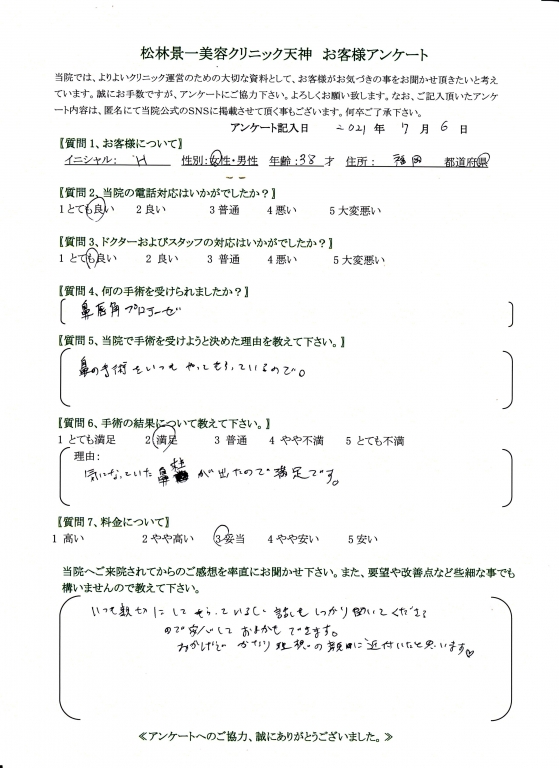 松林景一美容クリニック天神 お客様アンケート
当院では、よりよいクリニック運営のための大切な資料として、お客様がお気づきの事をお聞かせ頂きたいと考え
ています。誠にお手数ですが、アンケートにご協力下さい。よろしくお願い致します。なお、ご記入頂いたアンケ
ート内容は、匿名にて当院公式のSNSに掲載させて頂く事もございます。何卒ご了承下さい。
アンケート記入日 2021年 7月 6日
〖質問1、お客様について〗
イニシャル： H 性別：女性・男性 年齢：38才 住所： 福岡 都道府県
〖質問2、当院の電話対応はいかがでしたか？〗
1とても良い 2良い 3普通 4悪い 5大変悪い
〖質問3、ドクターおよびスタッフの対応はいかがでしたか？〗
1とても良い 2良い 3普通 4悪い 5大変悪い
〖質問4、何の手術を受けられましたか？〗
鼻唇角プロテーゼ
〖質問5、当院で手術を受けようと決めた理由を教えて下さい。〗
鼻の手術をいつもやってもらっているので。
〖質問6、手術の結果について教えて下さい。〗
1とても満足 2満足 3普通 4やや不満 5とても不満
理由：
気になっていた鼻柱が出たので満足です。
〖質問7、料金について〗
1高い 2やや高い 3妥当 4やや安い 5安い
当院へご来院されてからのご感想を率直にお聞かせ下さい。また、要望や改善点など些細な事でも
構いませんので教えて下さい。
いつも親切にしてもらっているし、話もしっかり聞いてくださる
ので安心しておまかせできます。
おかげで かなり理想の鼻に近付いたと思います♡
≪アンケートへのご協力、誠にありがとうございました。≫